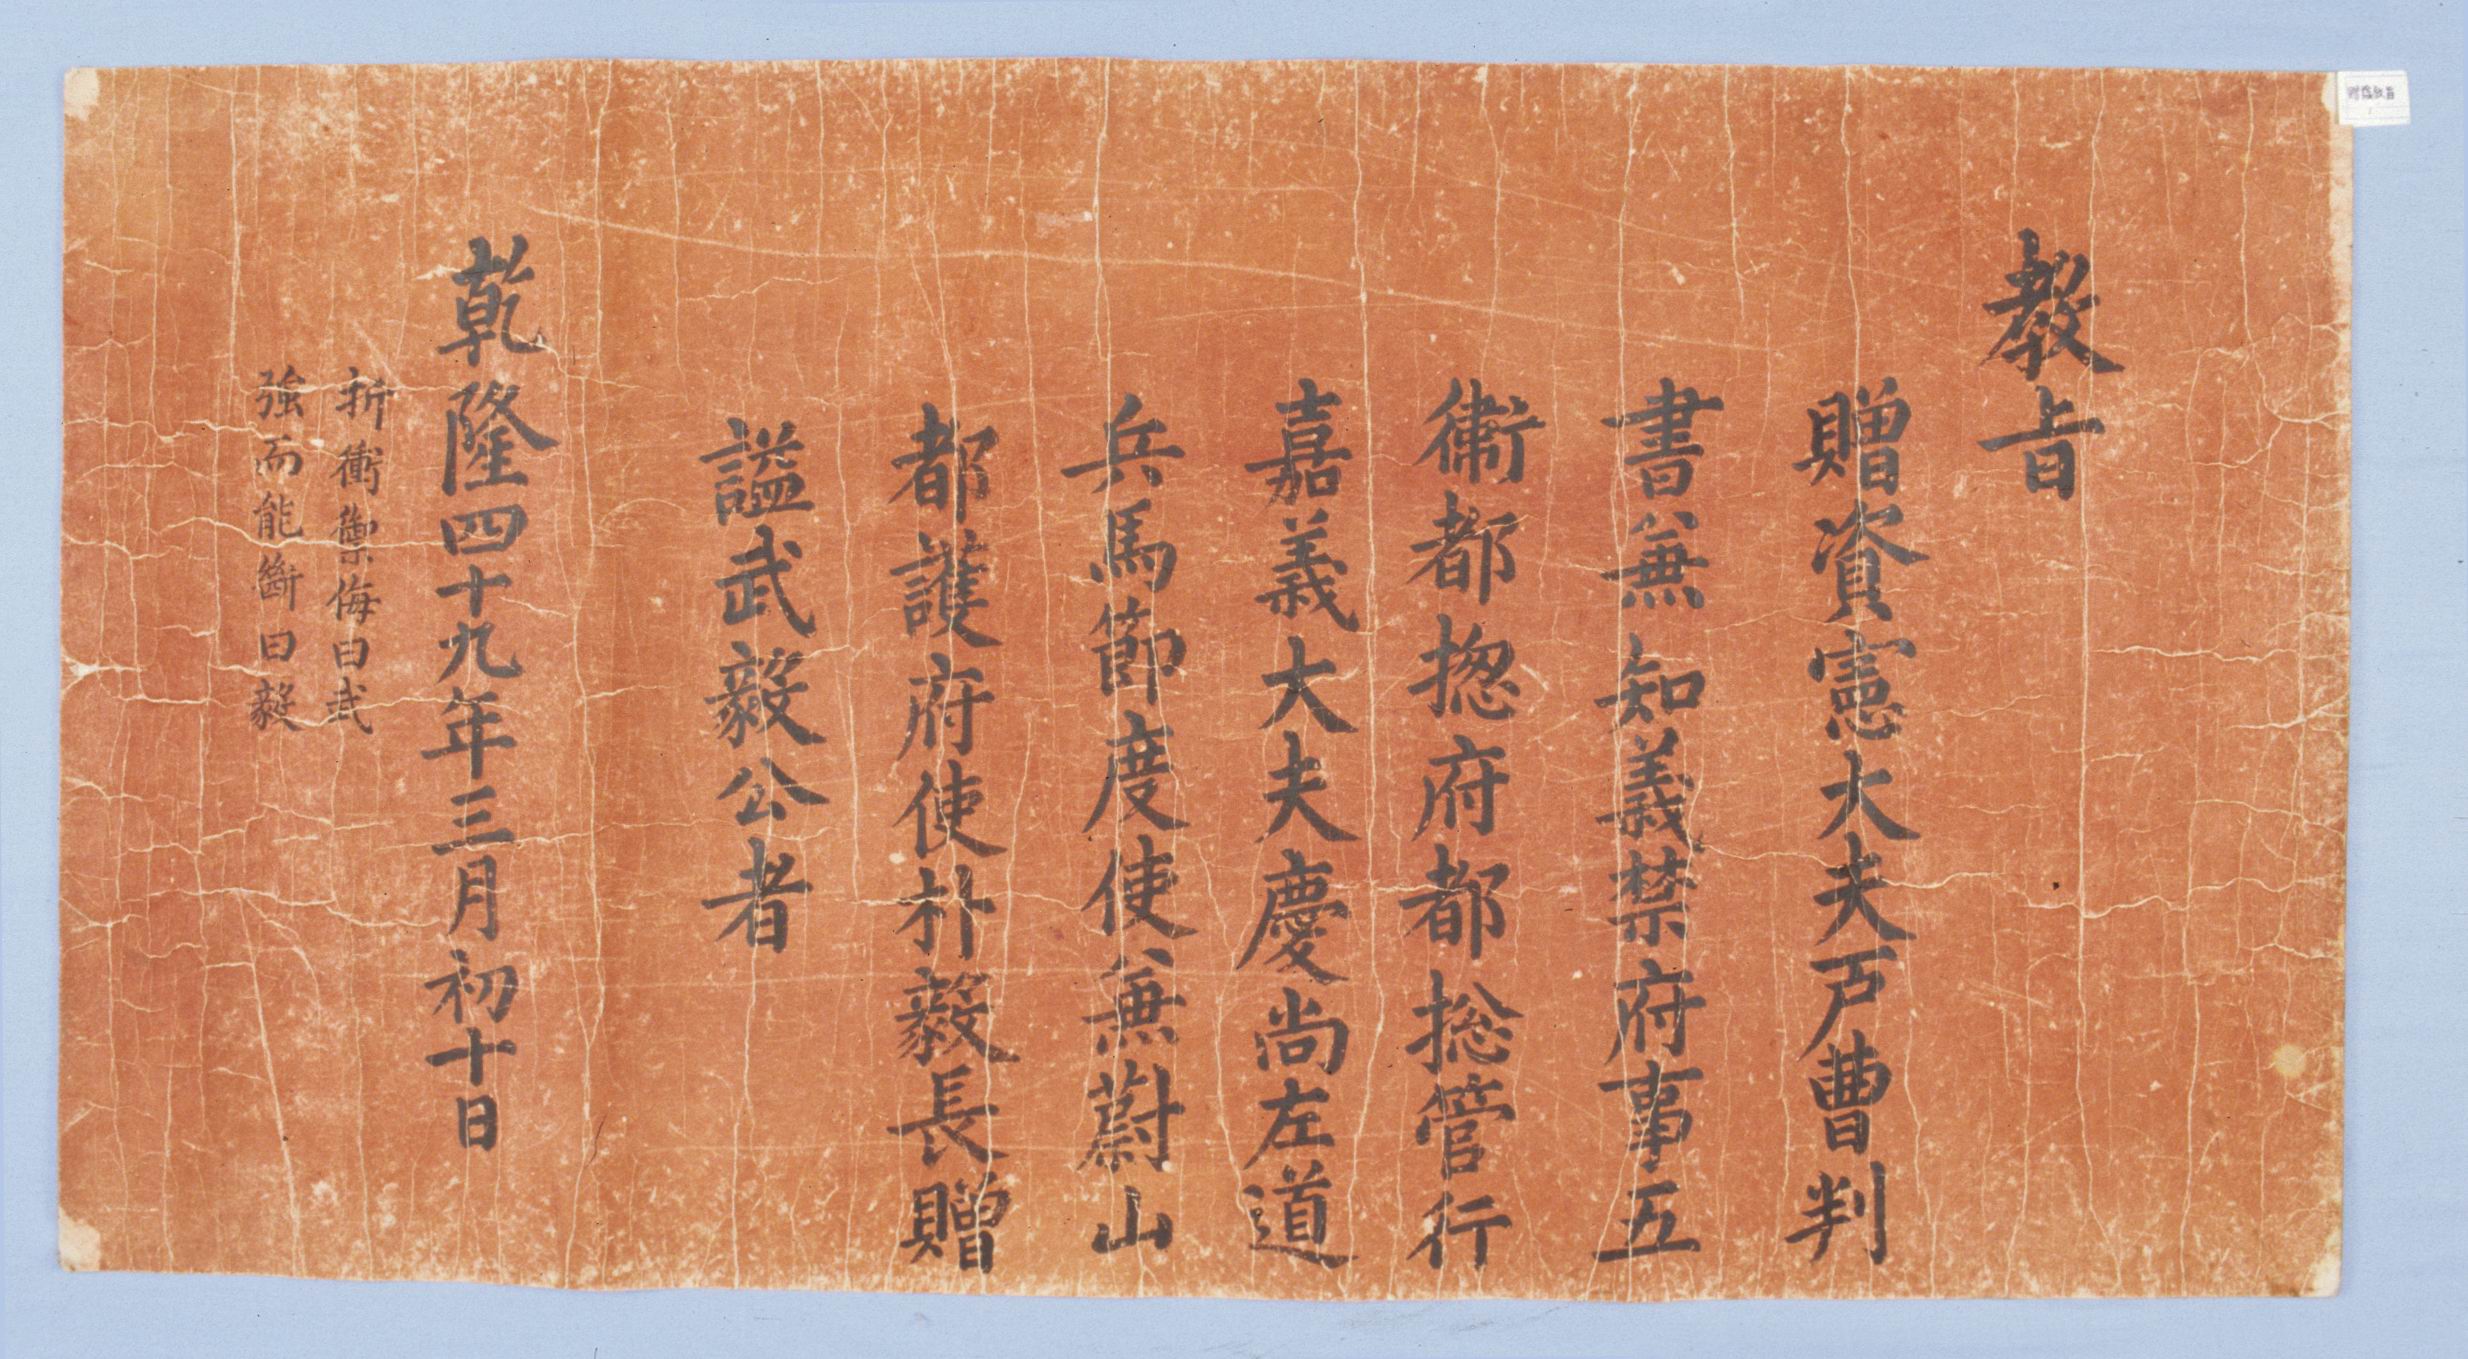 教旨
贈資憲大夫戶曹判
書兼知義禁府事五
衛都揔府都摠管行
嘉義大夫慶尚左道
兵馬節度使兼蔚山
都護府使朴毅長贈
謚武毅公者
乾隆四十九年三月初十日
折衝禦侮曰武
強而能斷曰毅